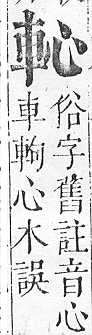 軐
俗字舊註音心
車軥心木誤